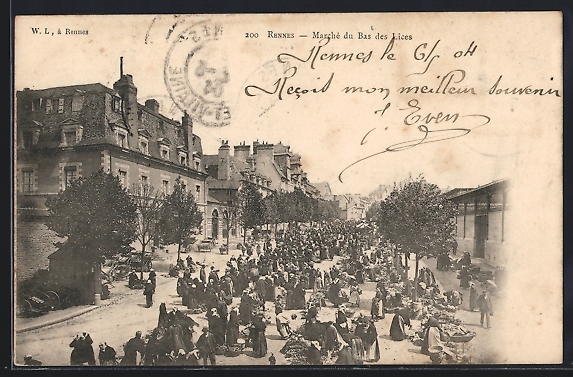 W. L., à Rennes
200 RENNES — Marché du Bas des Lices
Rennes le 6/5 04
Reçois mon meilleur souvenir
Even